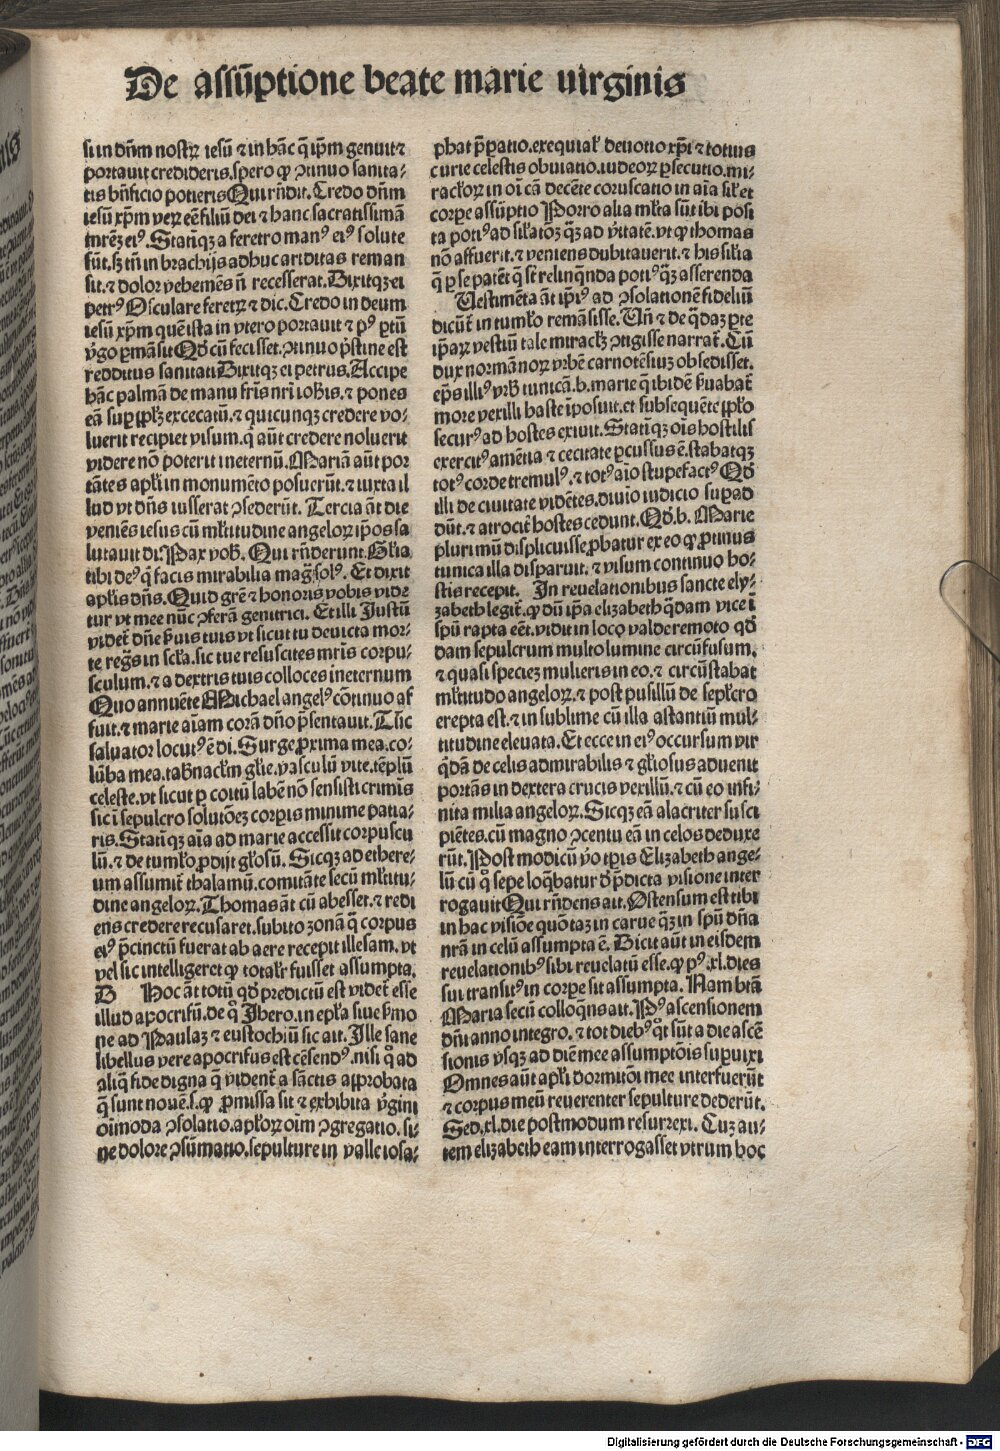 De assūptione beate marie uirginis
si in dn̄m nostrꝝ iesū ⁊ in hāc q̄ ip̄m genuit ⁊
portauit credideris. spero ꝙ ꝯtinuo sanita-
tis bn̄ficio potieris Qui rn̄dit. Credo dn̄m
iesū xp̄m veꝝ eē filiū dei ⁊ hanc sacratissimā
mr̄eꝫ eiꝰ. Statiꝫqꝫ a feretro manꝰ eiꝰ solute
sūt. sꝫ tn̄ in brachijs adhuc ariditas reman
sit. ⁊ dolor vehemēs nō recesserat. Dixitqꝫ ei
petrꝰ Osculare feretꝝ ⁊ dic. Credo in deum
iesū xp̄m quē ista in vtero portauit ⁊ pꝰ ꝑtū
v̄go ꝑmāsit Qd̄ cū fecisset. ꝯtinuo p̄stine est
redditus sanitati Dixitqꝫ ei petrus. Accipe
hāc palmā de manu fr̄is nr̄i ioh̄is. ⁊ pones
eā suꝑ ppl̄ꝫ excecatū. ⁊ quicunqꝫ credere vo-
luerit recipiet visum. q̄ aūt credere noluerit
videre nō poterit in eternū. Mariā aūt por
tātes apl̄i in monumēto posuerūt. ⁊ iuxta il
lud vt dn̄s iusserat ꝯsederūt. Tercia āt die
veniēs iesus cū ml̄titudine angeloꝝ ip̄os sa
lutauit di. Pax vob̄. Qui rn̄derunt. Gl̄ia
tibi deꝰ q̄ facis mirabilia mag̃ solꝰ. Et dixit
apl̄is dn̄s. Quid gr̄e ⁊ honoris vobis vide
tur vt mee nūc ꝯferā genitrici. Et illi Justū
videt̄ dn̄e s̄uis tuis vt sicut tu deuicta mor-
te regr̄s in scl̄a. sic tue resuscites mr̄is corpu-
sculum. ⁊ a dextris tuis colloces in eternum
Quo annuēte Michael angelꝰ cōtinuo af
fuit. ⁊ marie aīam corā dn̄o p̄sentauit. Tūc
saluator locutꝰ ē di. Surge ꝓxima mea. co-
lūba mea. tab̄nacl̄m gl̄ie. vasculū vite. tēplū
celeste. vt sicut ꝑ coitū labē nō sensisti crimīs
sic ī sepulcro solutōeꝫ corꝑis minime patia-
ris. Statiꝫqꝫ aīa ad marie accessit corpuscu
lū. ⁊ de tuml̄o ꝓdijt gl̄osū. Sicqꝫ ad ethere-
um assumit̄ thalamū. comitāte secū ml̄titu-
dine angeloꝝ. Thomas āt cū abesset. ⁊ redi
ens credere recusaret. subito zonā q̄ corpus
eiꝰ p̄cinctū fuerat ab aere recepit illesam. vt
vel sic intelligeret ꝙ total̄r fuisset assumpta.
B Hoc āt totū qd̄ predictū est videt̄ esse
illud apocrifū. de q̊ Jhero. in ep̄la siue s̄mo
ne ad Paulaꝫ ⁊ eustochiū sic ait. Ille sane
libellus vere apocrifus est cēsendꝰ. nisi q̊ ad
aliq̄ fide digna q̄ vident̄ a sāctis approbata
q̄ sunt nouē. s. ꝙ ꝓmissa sit ⁊ exhibita v̄gini
oīmoda ꝯsolatio. apl̄oꝝ oīm ꝯgregatio. si-
ne dolore ꝯsūmatio. sepulture in valle iosa-
phat p̄ꝑatio. exequial̄ deuotio xp̄i ⁊ totius
curie celestis obuiatio. iudeoꝝ ꝑsecutio. mi-
racl̄oꝝ in oī cā decēte coruscatio in aīa sil̄ et
corꝑe assūptio Porro alia ml̄ta sūt ibi posi
ta potiꝰ ad sil̄atōꝫ qꝫ ad v̄itatē. vt ꝙ thomas
nō affuerit. ⁊ veniens dubitauerit. ⁊ his sil̄ia
q̄ ꝑ se patēt q̄ st̄ relinq̄nda potiꝰ qꝫ asserenda
Uestimēta āt ip̄iꝰ ad ꝯsolationē fideliū
dicūt̄ in tuml̄o remāsisse. Un̄ ⁊ de q̄daꝫ ꝑte
ip̄aꝝ vestiū tale miracl̄ꝫ ꝯtigisse narrat̄. Cū
dux normānoꝝ vrbē carnotēsiuꝫ obsedisset.
ep̄s illiꝰ vrb̄ tunicā. b. marie q̄ ibidē s̄uabat̄
more vexilli haste īposuit. et subsequēte pplo
securꝰ ad hostes exiuit. Statiꝫqꝫ oīs hostilis
exercitꝰ amētia ⁊ cecitate ꝑcussus ē. stabatqꝫ
totꝰ corde tremulꝰ. ⁊ totꝰ aīo stupefactꝰ Qd̄
illi de ciuitate vidētes. diuio iudicio suꝑ ad
dūt. ⁊ atrocit̄ hostes cedunt. Qd̄. b. Marie
plurimū displicuisse ꝓbatur ex eo ꝙ ꝓtinus
tunica illa disparuit. ⁊ visum continuo ho-
stis recepit. In reuelationibus sancte ely-
zabeth legit̄. ꝙ dū ip̄a elizabeth q̄dam vice ī
spū rapta eēt. vidit in loco valde remoto qd̄
dam sepulcrum multo lumine circūfusum.
⁊ quasi specieꝫ mulieris in eo. ⁊ circūstabat
ml̄titudo angeloꝝ. ⁊ post pusillū de sepl̄cro
erepta est. ⁊ in sublime cū illa astantiū mul-
titudine eleuata. Et ecce in eiꝰ occursum vir
q̄dā de celis admirabilis ⁊ gl̄iosus aduenit
portās in dextera crucis vexillū. ⁊ cū eo infi-
nita milia angeloꝝ. Sicqꝫ eā alacriter susci
piētes. cū magno ꝯcentu eā in celos deduxe
rūt. Post modicū v̄o tꝑis Elizabeth ange-
lū cū q̊ sepe loq̄batur d̄ p̄dicta visione inter
rogauit Qui rn̄dens ait. Ostensum est tibi
in hac visiōe quō tā in carne qꝫ in spū dn̄a
nr̄a in celū assumpta ē. Dicit aūt in eisdem
reuelationibꝰ sibi reuelatū esse. ꝙ pꝰ. xl. dies
sui transitꝰ in corꝑe sit assumpta. Nam btā
Maria secū colloq̄ns ait. Pꝰ ascensionem
dn̄i anno integro. ⁊ tot diebꝰ q̊t sūt a die ascē
sionis vsqꝫ ad diē mee assumptōis suꝑuixi
Omnes aūt apl̄i dormitōi mee interfuerūt
⁊ corpus meū reuerenter sepulture dederūt.
Sed. xl. die postmodum resurrexi. Cuꝫ au-
tem elizabeth eam interrogasset vtrum hoc
Digitalisierung gefördert durch die Deutsche Forschungsgemeinschaft - DFG